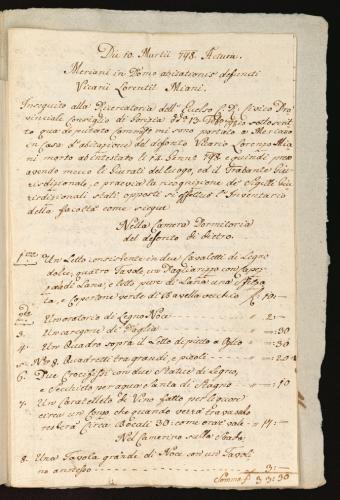 Die 10. Martii 798. Actum.
Meriani in Domo abitationis defuncti
Vicarii Lorentii Miani.
Inseguito alla Ricercatoria dell' Eccelso C. R. Civico Pro
vinciale Consiglio di Gorizia
qua deputato Commiss. mi sono portato a Meriano
in Casa d'abitazione del defonto Vicario Lorenzo Mia
ni morto ab intestato li 14. Genn. 798 e quindi pre
avendo meco li Giurati del luogo, ed il Trabante Giu
risdizionale, e praevia la ricognizione de' Sigilli Giu
risdizionali stati apposti si effettuò l'Inventario
della facoltà come siegue
Nella Camera Dormitoria
del defonto di dietro.
1mo Un Letto consistente in due Cavaletti di Legno
dolce, quattro Tavole, un Pagliarizzo con
di Lana, e letto pure di Lana una
ta, e Coperone verde di Bavella vecchio f. 10: —
2do Un oratorio di Legno Noce — " 2: —
3. Un caregone di Paglia — " —: 30
4. Un Quadro sopra il Letto dipinto a Oglio — " —: 30
5. No 8. Quadretti tra grandi, e picoli — " —: 20
6. Due Crocifissi con due Statue di Legno,
e Secchietto per aqua Santa di Stagno — " —: 10
7. Un Caratelletto di Vino fatto per liquore
circa un Conzo che quando verrà travasato
resterà Circa Bocali 30 come onze vale — " 17: —
Nel Camerino sulla Strada
8. Una Tavola grande di Noce con un Tavoli
no annesso — " 3: —
Somma f. 33: 30